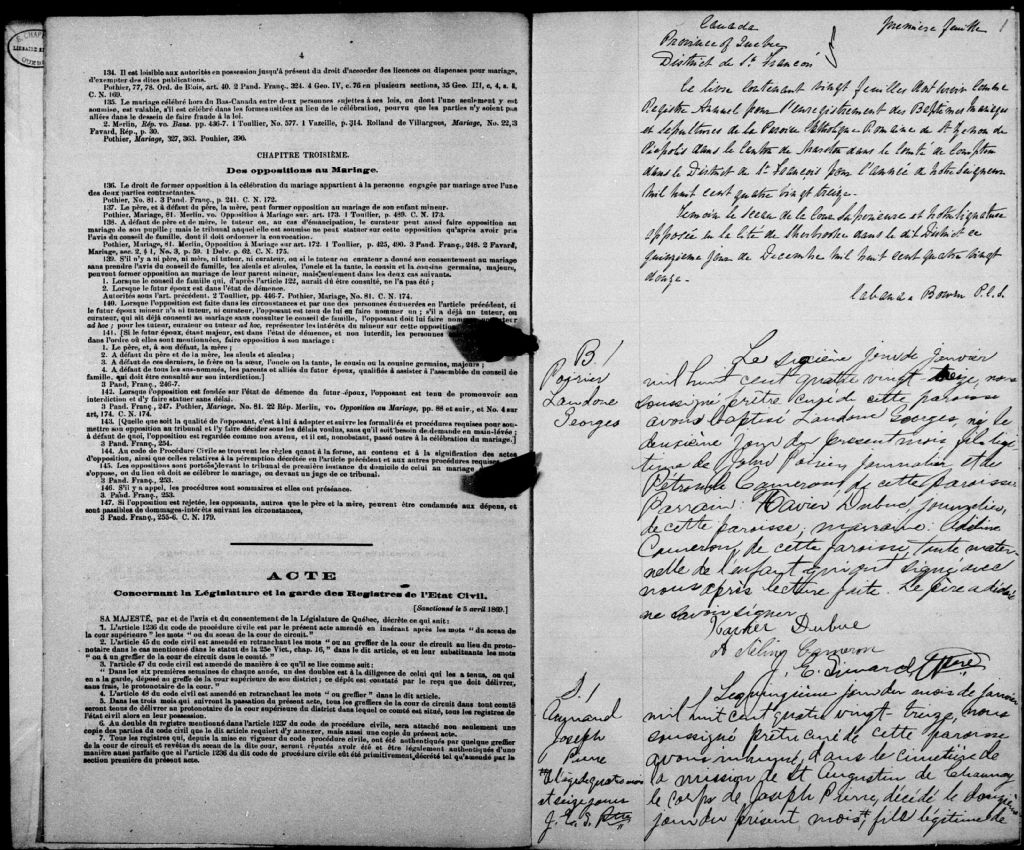 4
134. Il est loisible aux autorités en possession jusqu'à présent du droit d'accorder des licences ou dispenses pour mariage,
d'exempter des dites publications.
Pothier, 77, 78. Ord. de Blois, art. 40. 2 Pand. Franç., 324. 4 Geo. IV, c. 76 en plusieurs sections, 35 Geo. III, c, 4, s. 8,
C. N. 169.
135. Le mariage célébré hors du Bas-Canada entre deux personnes sujettes à ses lois, ou dont l'une seulement y est
soumise, est valable, s'il est célébré dans les formes usitées au lieu de la célébration, pourvu que les parties n'y soient pas
allées dans le dessein de faire fraude à la loi.
2. Merlin, Rép. vo. Bans. pp. 436-7. 1 Toullier, No. 577. 1 Vazille, p. 314. Rolland de Villargues, Mariage, No. 22,3
Favard, Rép., p. 30.
Pothier, Mariage, 327, 363. Pouhier, 396.
CHAPITRE TROISIÈME.
Des oppositions au Mariage.
136. Le droit de former opposition à la célébration du mariage appartient à la personne engagée par mariage avec l'une
des deux parties contractantes.
Pothier, No. 81. 3 Pand. Franç., p. 241. C. N. 172.
137. Le père, et à défaut du père, la mère, peut former opposition au mariage de son enfant mineur.
Pothier, Mariage, 81. Merlin, vo. Opposition à Mariage sur. art. 173. 1 Toullier, p. 489. C. N. 173.
138. A défaut de père et de mère, le tuteur ou, au cas d'émancipation, le curateur peut aussi faire opposition au
mariage de son pupille; mais le tribunal auquel elle est soumise ne peut statuer sur cette opposition qu'après avoir pris
l'avis du conseil de famille, dont il doit ordonner la convocation.
Pothier, Mariage, 81. Merlin, Opposition à Mariage sur art. 172. 1 Toullier, p. 425, 490. 3 Pand. Franç., 248. 2 Favard,
Mariage, sec. 2, § 1, No. 3, p. 59. 1 Delv. p. 62, C. N. 175.
139. S'il n'y a ni père, ni mère, ni tuteur, ni curateur, ou si le tuteur ou curateur a donné son consentement au mariage
sans prendre l'avis du conseil de famille, les aïeuls et aïeules, l'oncle et la tante, le cousin et la cousine germains, majeurs,
peuvent former opposition au mariage de leur parent mineur, mais seulement dans les deux cas suivants.
1. Lorsque le conseil de famille qui, d'après l'article 122, aurait dû être consulté, ne l'a pas été;
2. Lorsque le futur époux est dans l'état de démence.
Autorités sous l'art. précédent. 2 Toullier, pp. 446-7. Pothier, Mariage, No. 81. C. N. 174.
140. Lorsque l'opposition est faite dans les circonstances et par une des personnes énumérées en l'article précédent, si
le futur époux mineur n'a ni tuteur, ni curateur, l'opposant est tenu de lui en faire nommer un; s'il a déjà un tuteur, ou
curateur, qui ait déjà consenti au mariage sans consulter le conseil de famille, l'opposant doit lui faire nommer un tuteur
ad hoc; pour les tuteur, curateur ou tuteur ad hoc, représenter les intérêts du mineur sur cette opposition
141. [Si le futur époux, étant majeur, est dans l'état de démence, et non interdit, les personnes
dans l'ordre où elles sont mentionnées, faire opposition à son mariage:
1. Le père, et, à son défaut, la mère;
2. A défaut du père et de la mère, les aïeuls et aïeules;
3. A défaut de ces derniers, le frère ou la sœur, l'oncle ou la tante, le cousin ou la cousine germains, majeurs;
4. A défaut de tous les sus-nommés, les parents et alliés du futur époux, qualifiés à assister à l'assemblée du conseil de
famille, qui doit être consulté sur son interdiction.]
3 Pand. Franç., 246-7.
142. Lorsque l'opposition est fondée sur l'état de démence du futur-époux, l'opposant est tenu de promouvoir son
interdiction et d'y faire statuer sans délai.
3 Pand. Franç., 247. Pothier, Mariage, No. 81. 22 Rép. Merlin, vo. Opposition au Mariage, pp. 88 et suiv., et No. 4 sur
art, 174. C. N. 174.
143. [Quelle que soit la qualité de l'opposant, c'est à lui à adopter et suivre les formalités et procédures requises pour sou-
mettre son opposition au tribunal et l'y faire décider sous les délais voulus, sans qu'il soit besoin de demande en main-levée; à
défaut de quoi, l'opposition est regardée comme non avenu, et il est, nonobstant, passé outre à la célébration du mariage.]
3 Pand. Franç., 254.
144. Au code de Procédure Civile se trouvent les règles quant à la forme, au contenu et à la signification des actes
d'opposition, ainsi que celles relatives à la péremption décrétée en l'article précédent et aux autres procédures requises.
145. Les oppositions sont portées devant le tribunal de première instance du domicile de celui au mariage
s'oppose, ou du lieu où doit se célébrer le mariage, ou devant un juge de ce tribunal.
3 Pand. Franç., 253.
146. S'il y a appel, les procédures sont sommaires et elles ont préséance.
3. Pand. Franç., 253.
147. Si l'opposition est rejetée, les opposants, autres que le père et la mère, peuvent être condamnés aux dépens, et
sont passibles de dommages-intérêts suivant les circonstances,
3 Pand. Franç., 255-6. C. N. 179.
ACTE
Concernant la Législature et la garde des Registres de l'Etat Civil.
[Sanctionné le 5 avril 1869.]
SA MAJESTÉ, par et de l'avis et du consentement de la Législature de Québec, décrète ce qui suit:
1. L'article 1236 du code de procédure civile est par le présent acte amendé en insérant après les mots "du sceau de
la cour supérieure" les mots "ou du sceau de la cour de circuit."
2. L'article 45 du code civil est amendé en retranchant les mots "ou au greffier de la cour de circuit au lieu du proto-
notaire dans le cas mentionné dans le statut de la 25e Vict., chap. 16," dans le dit article, et en leur substituants les mots
"ou à un greffier de la cour de circuit dans le comté."
3. L'article 47 du code civil est amendé de manière à ce qu'il se lise comme suit:
"Dans les six premières semaines de chaque année, un des doubles est à la diligence de celui qui les a tenus, ou qui
en a la garde, déposé au greffe de la cour supérieure de son district; ce dépôt est constaté par le reçu que doit délivrer,
sans frais, le protonotaire de la cour."
4. L'article 48 du code civil est amendé en retranchant les mots "ou greffier" dans le dit article.
5. Dans les trois mois qui suivront la passation du présent acte, tous les greffiers de la cour de circuit dans tout comté
seront tenus de délivrer au protonotaire de la cour supérieure du district dans lequel tel comté est situé, tous les registres de
l'état civil alors en leur possession.
6. Au double du registre mentionné dans l'article 1237 du code de procédure civile, sera attaché non seulement une
copie des parties du code civil que le dit article requiert d'y annexer, mais aussi une copie du présent acte.
7. Tous les registres qui, depuis la mise en vigueur du code procédure civile, ont été authentiqués par quelque greffier
de la cour de circuit et revêtus du sceau de la dite cour, seront réputés avoir été et être légalement authentiqués d'une
manière aussi parfaite que si l'article 1236 du dit code de procédure civile eût été primitivement décrété tel qu'amendé par la
section première du présent acte.
Canada
Province of Quebec
District de St François
première feuille 1
Ce livre contenant vingt feuilles doit servir comme
Registre Annuel pour l'enregistrement des Baptêmes Mariages
et Sépultures de la Paroisse Catholique Romaine de St Zenon de
Piopolis dans le Canton de Marston dans le Comté de Compton
dans le District de St François pour l'année de notre Seigneur
Mil huit cent quatre vingt treize.
Témoin le Sceau de la Cour Supérieure et notre signature
apposée en la Cité de Sherbrooke dans le dit District ce
quinzième jour de Decembre mil huit cent quatre vingt
douze.
Cabana & Bowen P.C.S.
B.
Poirier
Landone
Georges
Le sixième jour de Janvier
mil huit cent quatre vingt treize, nous
soussigné prêtre curé de cette paroisse
avons baptisé Landone Georges, né le
deuxième jour du présent mois, fils légi-
time de John Poirier, journalier et de
Pétronile Cameron de cette paroisse
Parrain: Xavier Dubuc, journalier,
de cette paroisse; marraine: Adéline
Cameron, de cette paroisse, tante mater-
nelle de l'enfant qui ont signé avec
nous après lecture faite. Le père a déclaré
ne savoir signer.
Xavier Dubuc
Adéline Cameron
J. E. Simard Ptre
S.
Joseph
Pierre
à l'âge de quatre mois
et seize jours
J. E. S. Ptre
Le quinzième jour du mois de janvier
mil huit cent quatre vingt-treize, nous
soussigné prêtre curé de cette paroisse
avons inhumé, dans le cimetière de
la mission de St Augustin de
le corps de Joseph Pierre, décédé le
jour du présent mois, fils légitime de